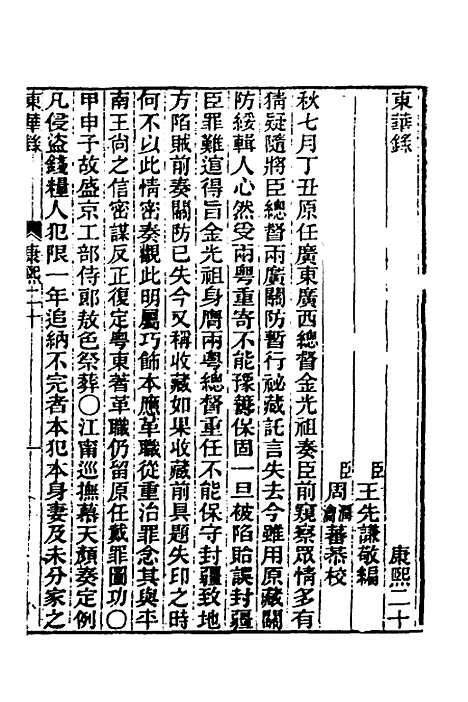 東華錄　康熙二十
臣王先謙敬編
臣周潤蕃周瀹蕃恭校
秋七月丁丑原任廣東廣西總督金光祖奏臣前窺察眾情多有
猜疑隨將臣總督兩廣關防暫行祕藏託言失去今雖用原藏關
防綏輯人心然受兩粵重寄不能豫籌保固一旦被陷貽誤封疆
臣罪難逭得旨金光祖身膺兩粵總督重任不能保守封疆致地
方陷賊前奏關防已失今又稱收藏如果收藏前具題失印之時
何不以此情密奏觀此明屬巧飾本應革職從重治罪念其與平
南王尚之信密謀反正復定粵東著革職仍留原任戴罪圖功〇
甲申予故盛京工部侍郎敖色祭葬〇江甯巡撫慕天顏奏定例
凡侵盜錢糧人犯限一年追納不完者本犯本身妻及未分家之
東華錄　康熙二十　一